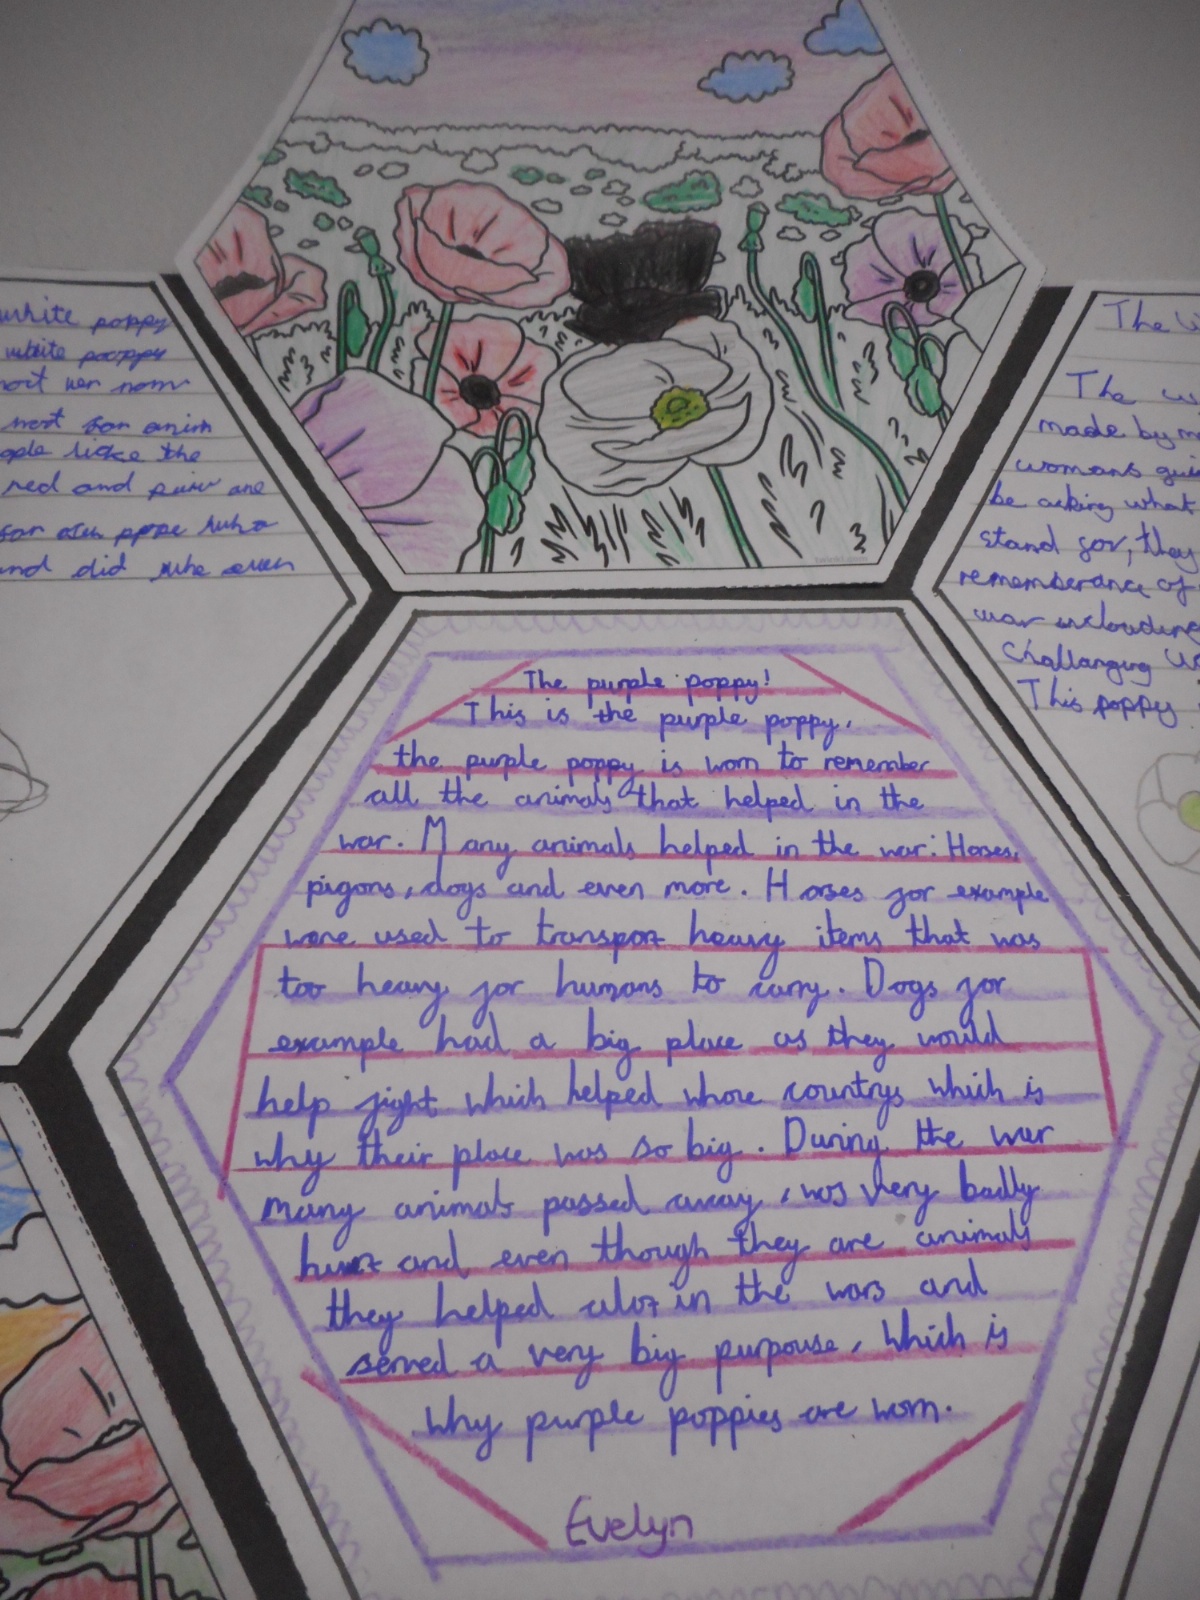 white poppy
white poppy
most for anim
the
red and
for
and did
The purple poppy!
This is the purple poppy.
the purple poppy is worn to remember
all the animals that helped in the
war. Many animals helped in the war: Horses,
pigons, dogs and even more. Horses for example
were used to transport heavy items that was
too heavy for humans to carry. Dogs for
example had a big place as they would
help fight which helped whole countrys which is
why their place was so big. During the war
many animals passed away, was very badly
hurt and even though they are animals
they helped alot in the wars and
served a very big purpouse, which is
why purple poppies are worn.
Evelyn
The
The
made by
womans
be asking what
stand for, they
rememberance of
war inclouding
challanging
This poppy